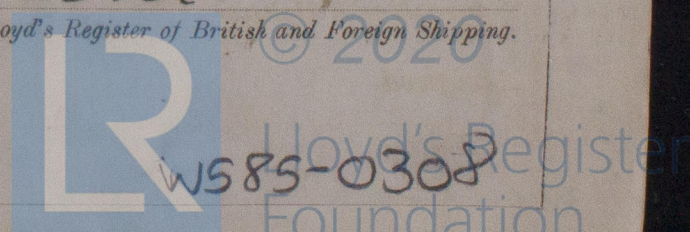 oyd's Register of British and Foreign Shipping.
© 2020
LR
Lloyd's Register
Foundation
W585-0308